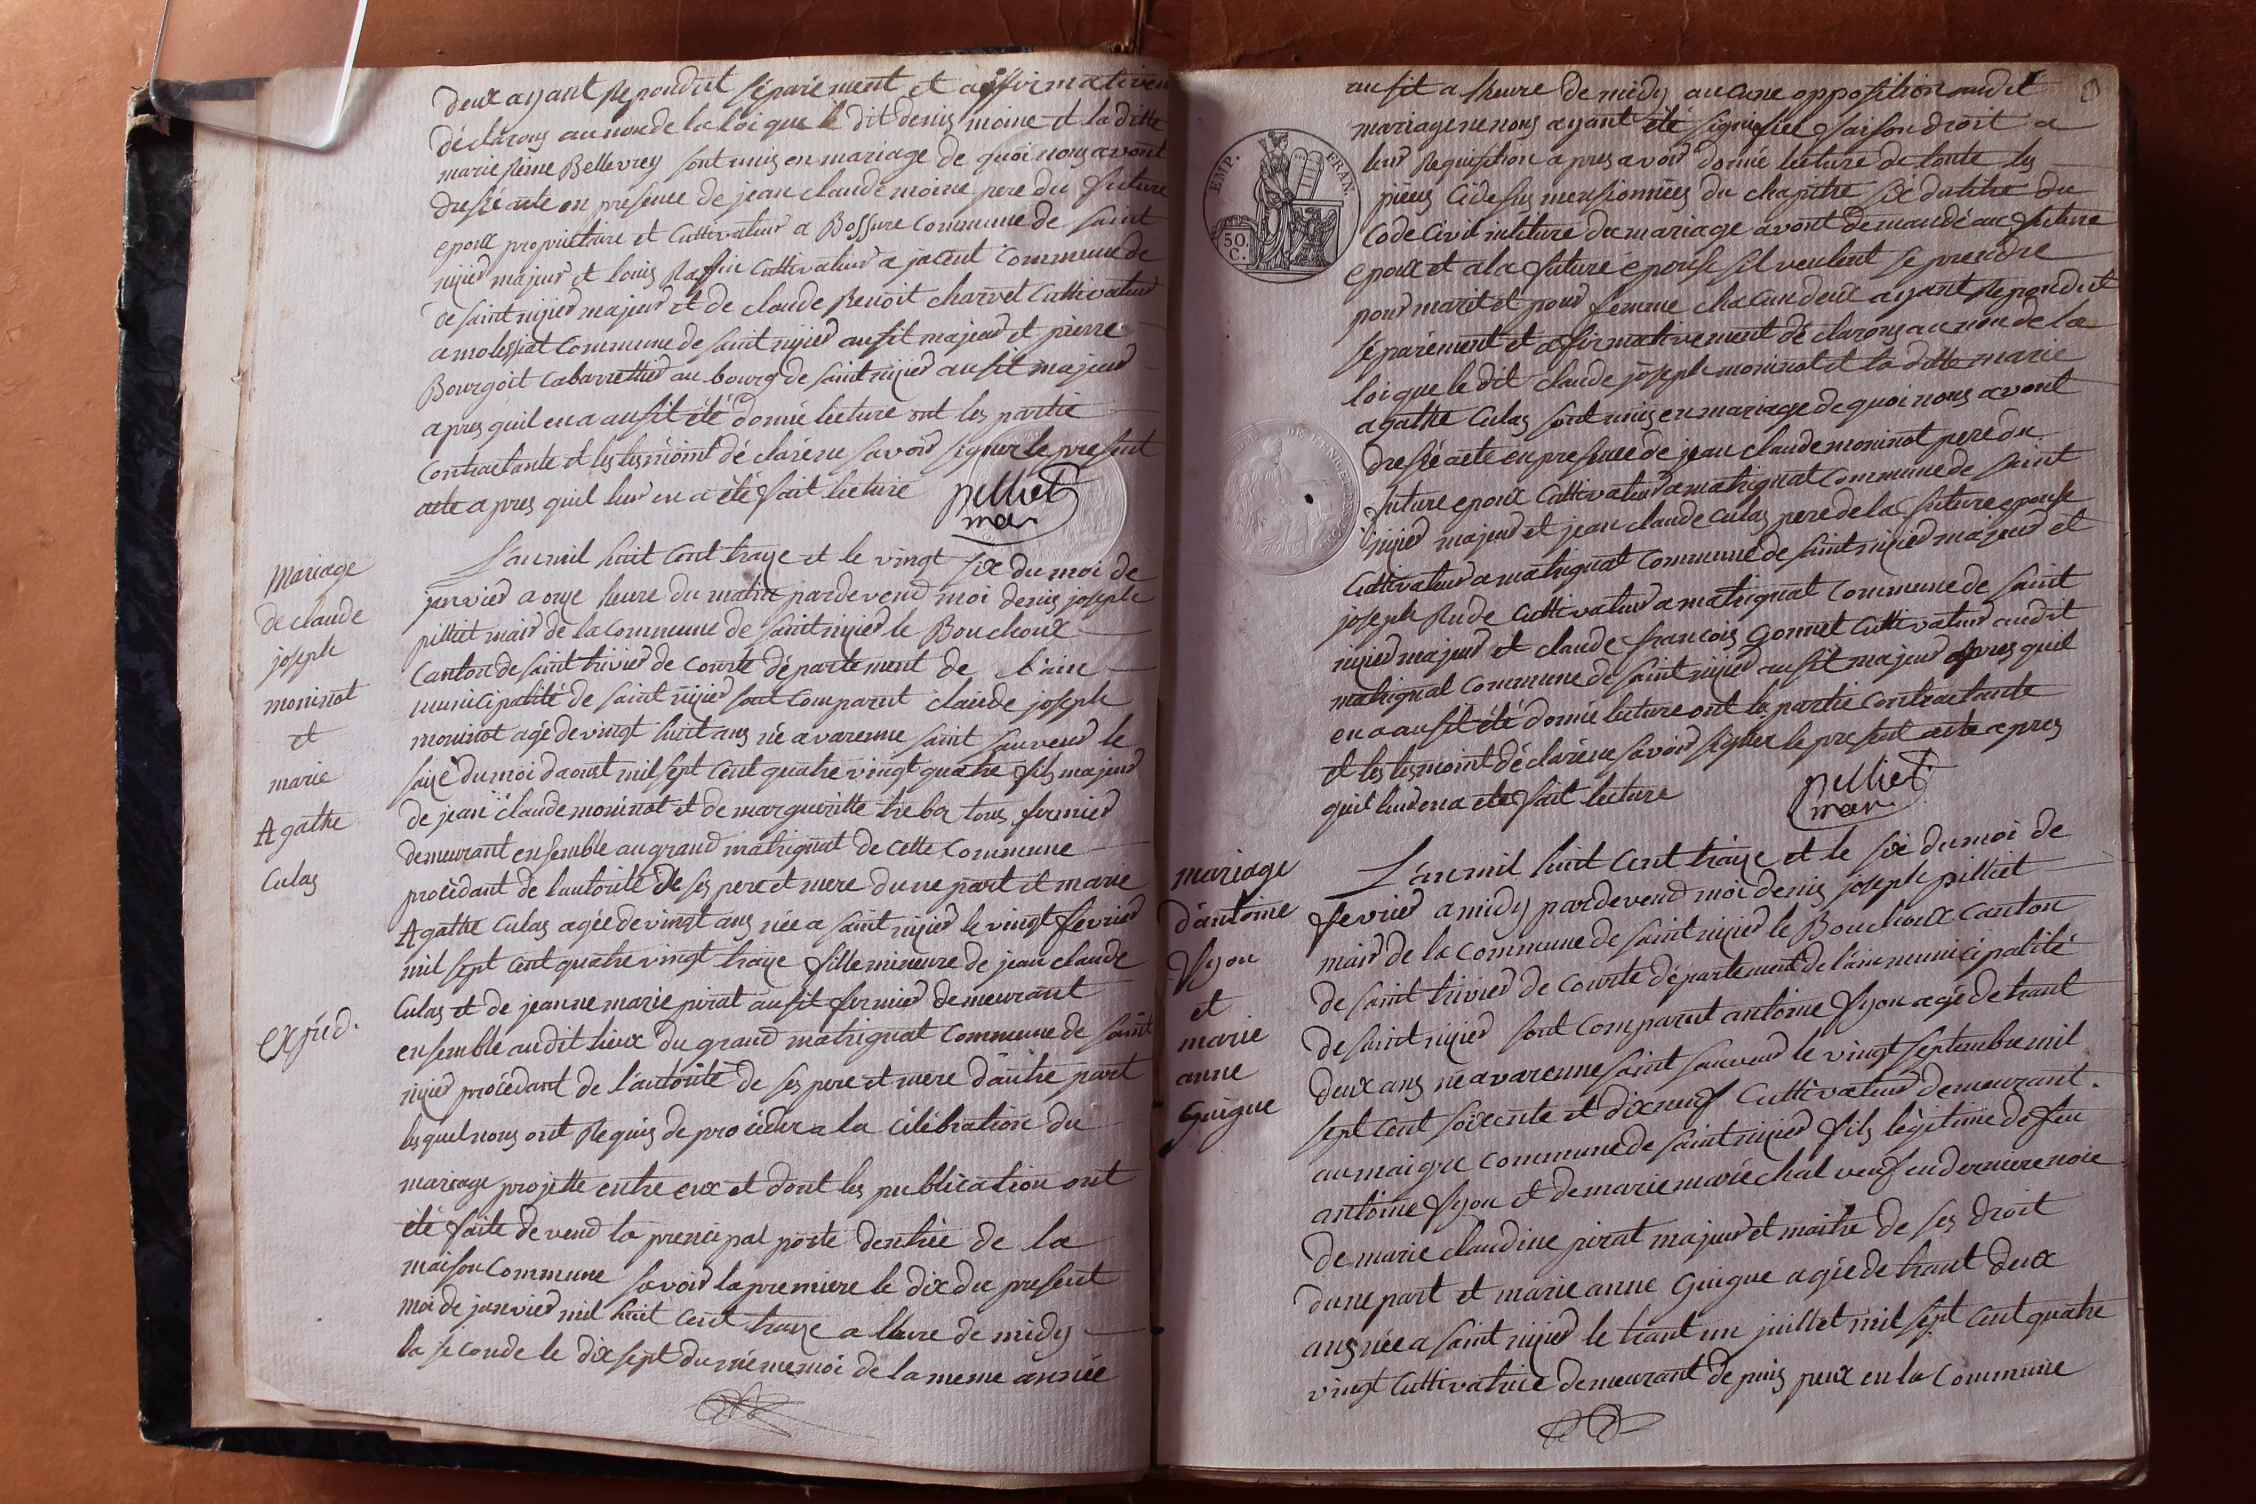 deux ayant Repondut séparément et affirmativem
déclarons au nom de la loi que le dit denis moine et la ditte
marie Reine Bellevrey sont unis en mariage de quoi nous avont
dressé acte en présence de jean claude moine pere du future
epoux propriettaire et Cultivateur a Bossure Commune de saint
nizier majeur et louis Raffin Cultivateur a jacent Commune de
de saint nizier majeur et de claude Benoit charvet Cultivateur
a molessiat Commune de saint nizier aussit majeur et pierre
Bourgoit Cabarettier au bourg de saint nizier aussit majeur
apres quil en a aussit été donné lecture ont les partie
Contractante et les tesmoint déclaré ne savoir signer le present
acte apres quil leur en a été fait lecture pilliet
mair
Mariage
de claude
joseph
moninot
et
marie
Agathe
Culas
expéd.
L'an mil huit Cent traize et le vingt six du moi de
janvier a onze heure du matin pardevend moi denis joseph
pilliet mair de la Commune de saint nizier le Bouchoux
Canton de saint trivier de Courte département de l'ain
municipalité de saint nizier sont Comparut claude joseph
moninot agé de vingt huit ans né a varenne saint sauveur le
saize du moi daoust mil sept Cent quatre vingt quatre fils majeur
de jean claude moninot et de margueritte trebor tous fermier
demeurant ensemble au grand matrignat de cette Commune
procédant de l'autorité de ses pere et mere dune part et marie
Agathe Culas agée de vingt ans née a saint nizier le vingt fevrier
mil sept Cent quatre vingt traize fille mineure de jean claude
Culas et de jeanne marie pirat aussit fermier demeurant
ensemble audit lieux du grand matrignat Commune de saint
nizier procédant de l'autorité de ses pere et mere d'autre part
les quel nous ont Requis de procéder a la célébration du
mariage projetté entre eux et dont les publication ont
été faite devend la principal porte d'entrée de la
maison Commune savoir la premiere le dix du present
moi de janvier mil huit Cent traize a l'heure de midy
la seconde le dix sept du même moi de la meme année
aussit a lheure de midy aucune opposition audit
mariage ne nous ayant été signifiet faison droit a
leur Requisition apres avoir donné lecture de toute les
pièces cïdessus mensionnées du chapitre six du titre du
Code Civil intiture du mariage avont demandé au future
epoux et a la future épouse sil veulent se prendre
pour marit et pour femme chacun deux ayant Repondut
séparément et afirmativement déclarons au nom de la
loi que le dit claude joseph moninot et la ditte marie
agathe Culas sont unis en mariage de quoi nous avont
dressé acte en presence de jean claude moninot pere du
future epoux Cultivateur a matrignat Commune de saint
nizier majeur et jean claude Culas pere de la future epouse
Cultivateur a matrignat Commune de saint nizier majeur et
joseph Rude Cultivateur a matrignat Commune de saint
nizier majeur et claude françois Gonnet Cultivateur audit
matrignat Commune de saint nizier aussit majeur apres quil
en a aussit été donné lecture ont la partie Contractante
et les tesmoint déclaré ne savoir signer le present acte apres
quil leur en a été fait lecture pilliet
mair
EMP. FRAN.
50.
C.
mariage
d'antoine
fyon
et
marie
anne
Guigue
L'an mil huit Cent traize et le six du moi de
fevrier a midy pardevend moi denis joseph pilliet
mair de la Commune de saint nizier le Bouchoux Canton
de saint trivier de Courte département de l'ain municipalité
de saint nizier sont Comparut antoine fyon agé de trant
deux ans né a varenne saint sauveur le vingt septembre mil
sept Cent soixente et dix neuf Cultivateur demeurant
au maigre Commune de saint nizier fils légitime de feu
antoine fyon et de marie marechal veuf en derniere noie
de marie claudine pirat majeur et maitre de ses droit
dune part et marie anne Guigue agée de trant deux
ans née a saint nizier le trant un juillet mil sept Cent quatre
vingt Cultivatrice demeurant depuis peux en la Commune